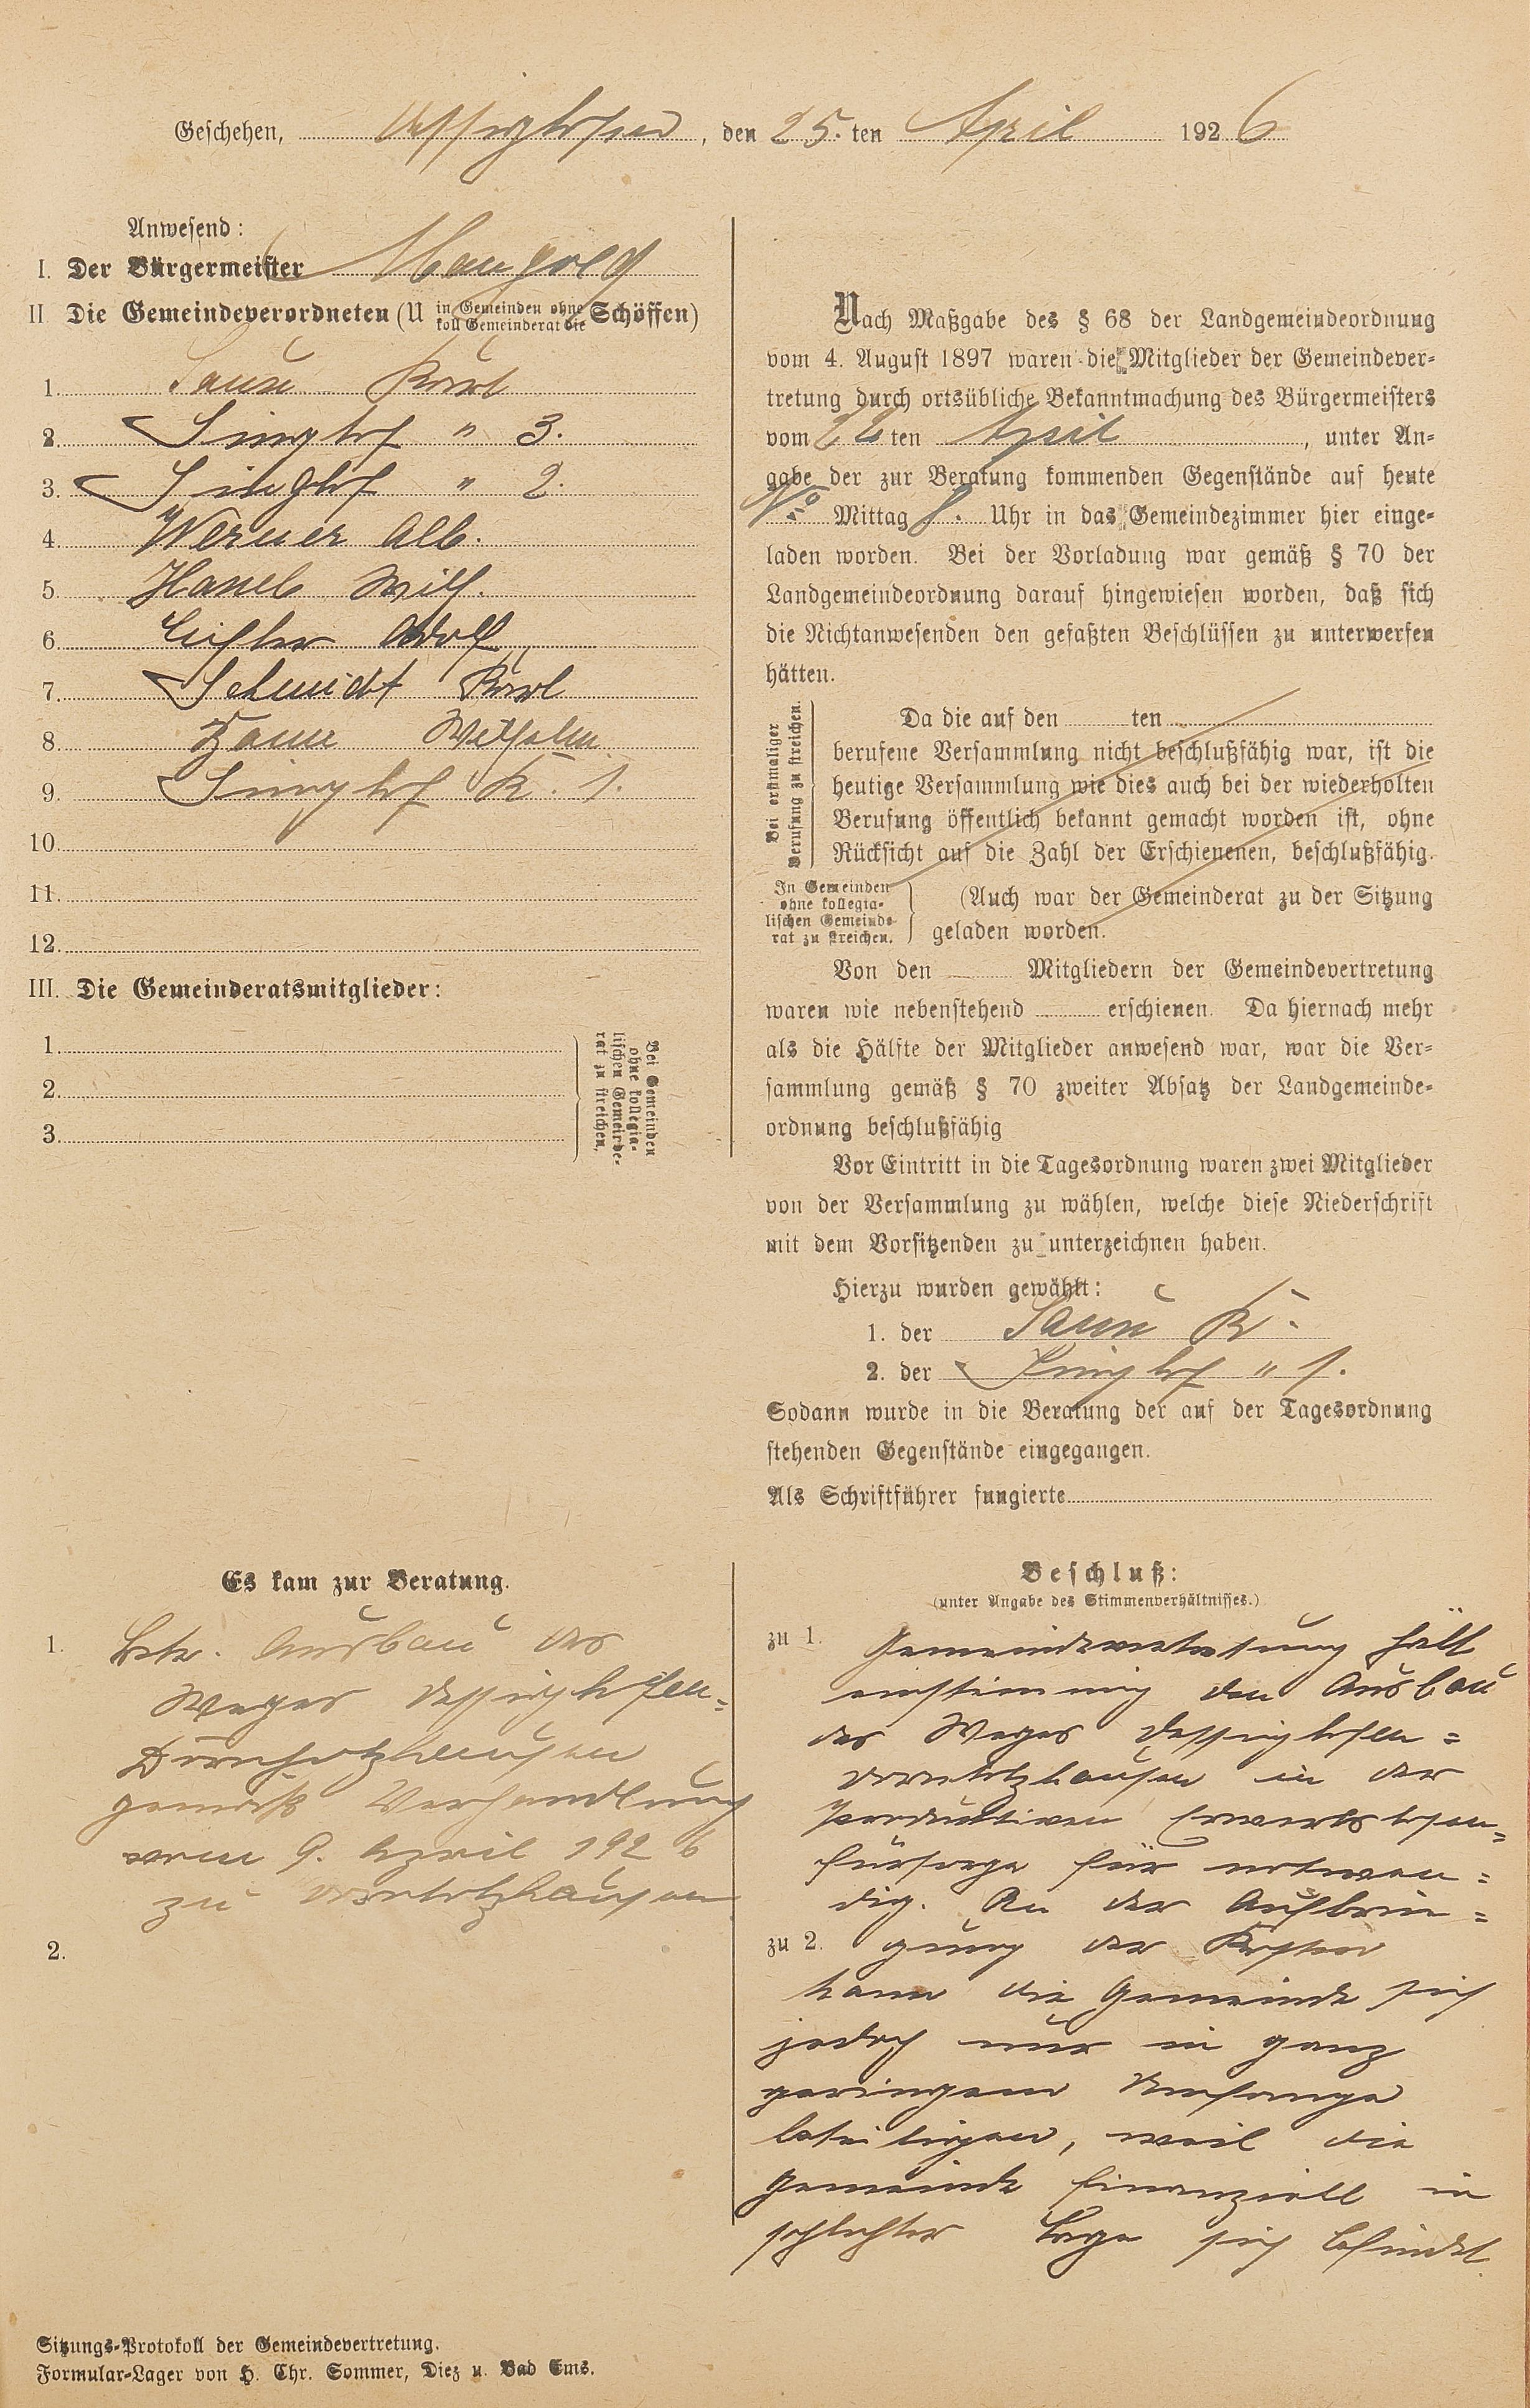 Geschehen, Dessighofen, den 25. ten April 1926
Anwesend:
I. Der Bürgermeister Mangold
II Die Gemeindeverordneten (U in Gemeinden ohne koll Gemeinderat die Schöffen)
1. Karl
2. Singhof " 3.
3. Singhof " 2.
4. Werner Alb.
5. Wilh.
6. Adolf
7. Schmidt Karl
8. Wilhelm
9. Singhof K. 1.
10.
11.
12.
III. Die Gemeinderatsmitglieder:
1.
2.
3.
Bei Gemeinden
ohne kollegia-
lischen Gemeinde-
rat zu streichen.
Nach Maßgabe des § 68 der Landgemeindeordnung
vom 4. August 1897 waren die Mitglieder der Gemeindever-
tretung durch ortsübliche Bekanntmachung des Bürgermeisters
vom ten April, unter An-
gabe der zur Beratung kommenden Gegenstände auf heute
Mittag 8. Uhr in das Gemeindezimmer hier einge-
laden worden. Bei der Vorladung war gemäß § 70 der
Landgemeindeordnung darauf hingewiesen worden, daß sich
die Nichtanwesenden den gefaßten Beschlüssen zu unterwerfen
hätten.
Bei erstmaliger
Berufung zu streichen.
Da die auf den ten
berufene Versammlung nicht beschlußfähig war, ist die
heutige Versammlung wie dies auch bei der wiederholten
Berufung öffentlich bekannt gemacht worden ist, ohne
Rücksicht auf die Zahl der Erschienenen, beschlußfähig.
In Gemeinden
ohne kollegia-
lischen Gemeinde
rat zu streichen.
(Auch war der Gemeinderat zu der Sitzung
geladen worden.
Von den Mitgliedern der Gemeindevertretung
waren wie nebenstehend erschienen. Da hiernach mehr
als die Hälfte der Mitglieder anwesend war, war die Ver-
sammlung gemäß § 70 zweiter Absatz der Landgemeinde-
ordnung beschlußfähig
Vor Eintritt in die Tagesordnung waren zwei Mitglieder
von der Versammlung zu wählen, welche diese Niederschrift
mit dem Vorsitzenden zu unterzeichnen haben.
Hierzu wurden gewählt:
1. der K.
2. der Singhof " 1.
Sodann wurde in die Beratung der auf der Tagesordnung
stehenden Gegenstände eingegangen.
Als Schriftführer fungierte
Es kam zur Beratung.
1. Betr. Ausbau des
Weges Dessighofen-
Dornholzhausen
gemäß Verhandlung
vom 9. April 1926
zu Dornholzhausen
2.
Beschluß:
(unter Angabe des Stimmenverhältnisses.)
zu 1. Gemeindevertretung hält
einstimmig den Ausbau
des Weges Dessighofen=
Dornholzhausen in der
produktiven Erwerbslosen=
fürsorge für notwen=
dig. An der Aufbrin=
zu 2. gung der Kosten
kann die Gemeinde sich
jedoch nur in ganz
geringem Umfange
beteiligen, weil die
Gemeinde finanziell in
schlechter Lage sich befindet.
Sitzungs-Protokoll der Gemeindevertretung.
Formular-Lager von H. Chr. Sommer, Diez u. Bad Ems.